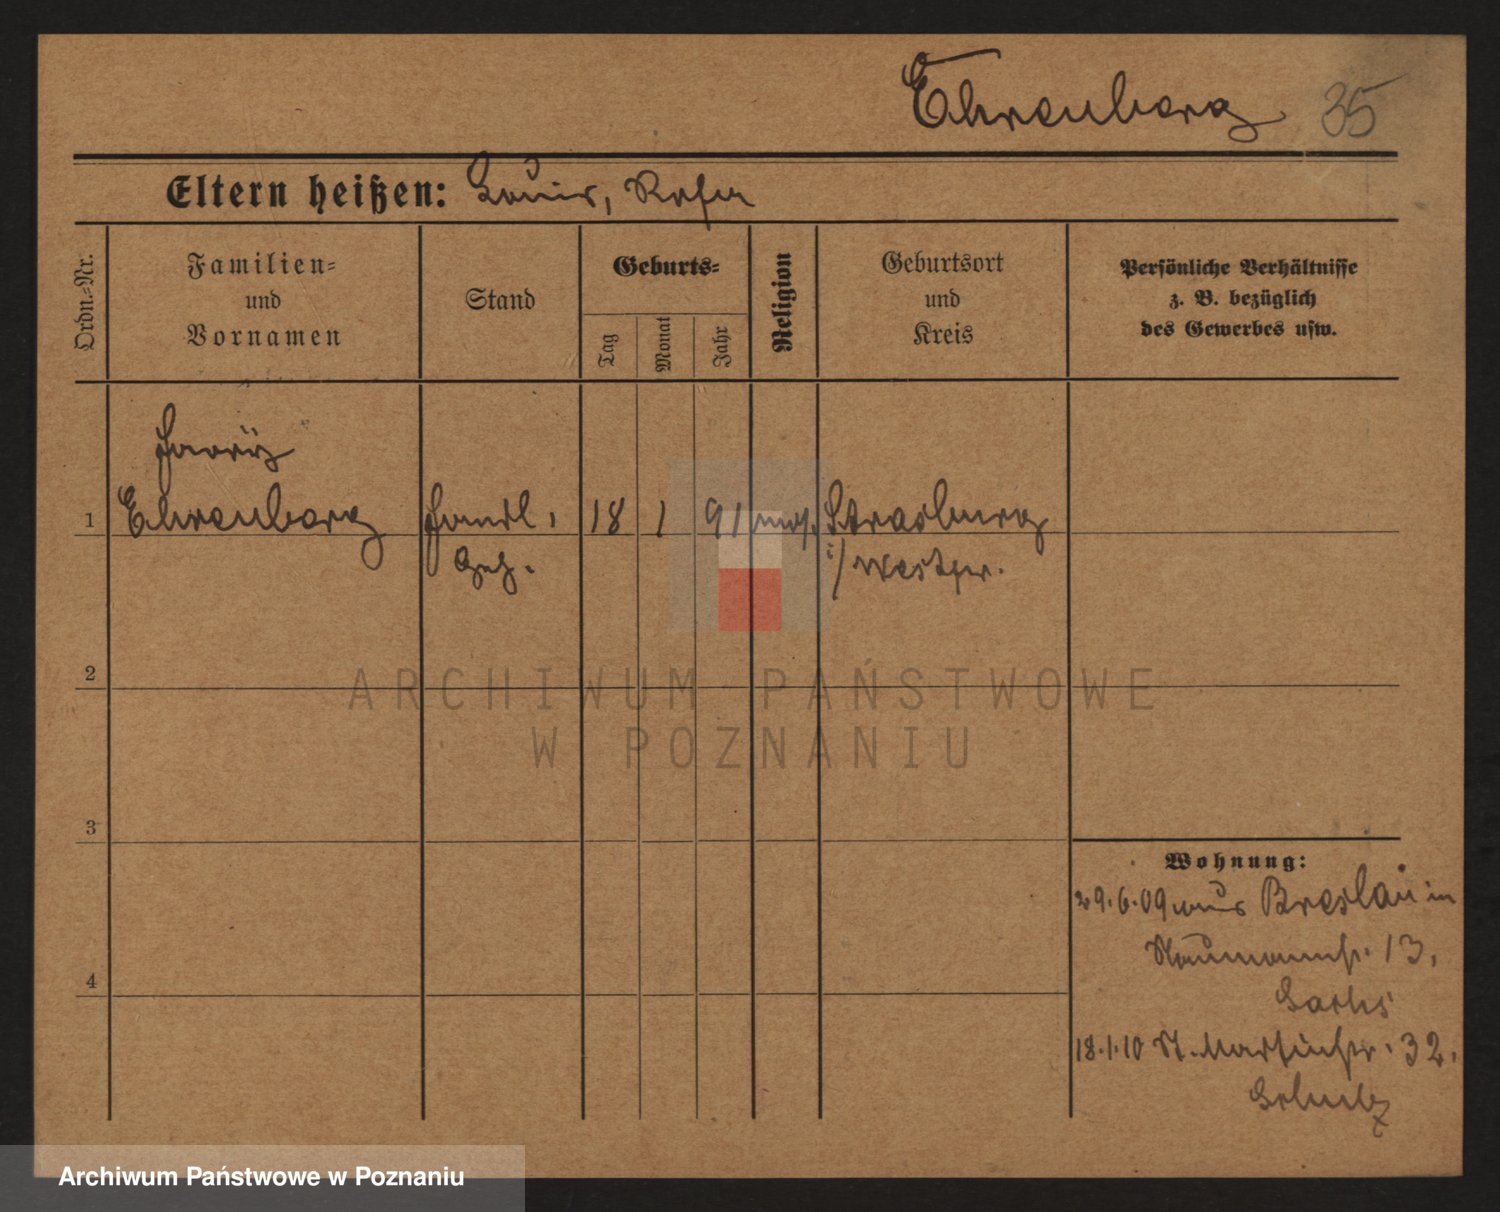 Ehrenberg 35
Eltern heißen: Louis, Rosa
Ordn.-Nr.
Familien-
und
Vornamen
Stand
Geburts-
Tag
Monat
Jahr
Religion
Geburtsort
und
Kreis
Persönliche Verhältnisse
z. B. bezüglich
des Gewerbes usw.
Harry
1 Ehrenberg Handl. 18 1 91 mos. Strasburg
Geh. i/ Westpr.
2
ARCHIWUM PAŃSTWOWE
W POZNANIU
3
Wohnung:
29.6.09 aus Breslau in
Naumannstr. 13,
Sachs
4
18.1.10 St. Martinstr. 32,
Archiwum Państwowe w Poznaniu